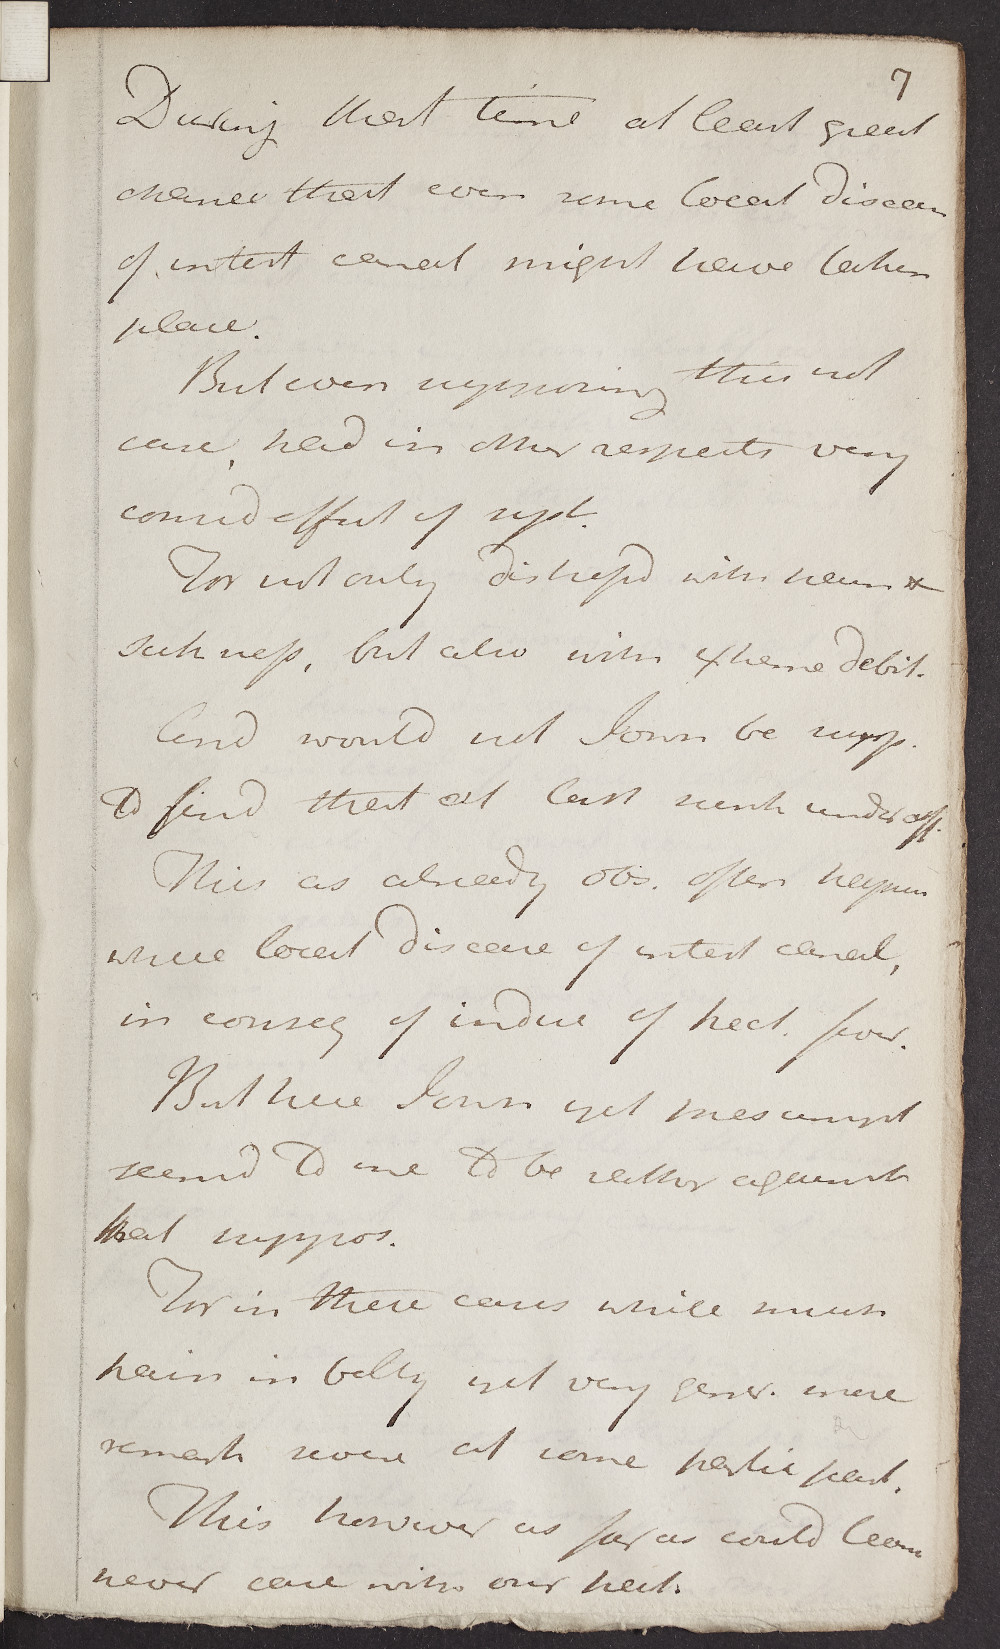 7
During that time at least great
chance that even some local disease
of intest canal might have taken
place.
But even supposing this not
case, had in other respects very
consid effect of syst.
For not only distressd with pain &
sickness, but also with extreme debit.
And would not I own be surp.
to find that at last sunk under aff.
This as already obs. often happen
where local disease of intest canal,
in conseq of induc of hect. fever.
But here I own yet mes
seem'd to me to be rather against
that suppos.
For in these cases while much
pain in belly yet very gener. more
remark severe at some partic part.
This however as far as could learn
never case with our pat.